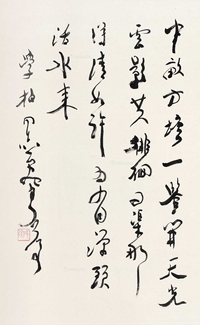 半畝方塘一鑒開天光
雲影共徘徊問渠那
得清如許為有源頭
活水來
學梅同志